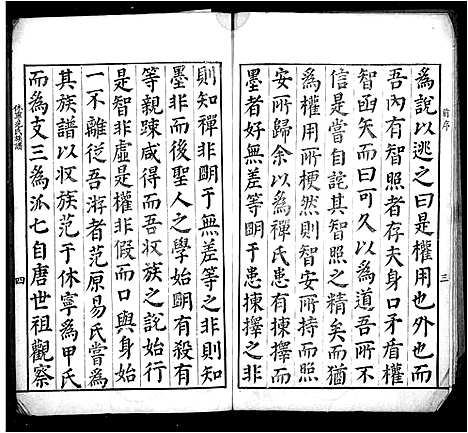 前序
三
為說以逃之曰是權用也外也而
吾內有智照者存夫身口矛盾權
智函矢而曰可久以為道吾所不
信是嘗自詫其智照之精矣而猶
為權用所梗然則智安所持而照
安所歸余以為禪氏患有揀擇而
墨者好無差等明于患揀擇之非
則知禪非明于無差等之非則知
墨非而後聖人之學始明有殺有
等親疎咸得而吾收族之說始行
是智非虛是權非假而口與身始
一不離從吾游者范原易氏嘗為
其族譜以收族范于休寧為甲氏
而為支三為派七自唐世祖觀察
休寧范氏族譜
四